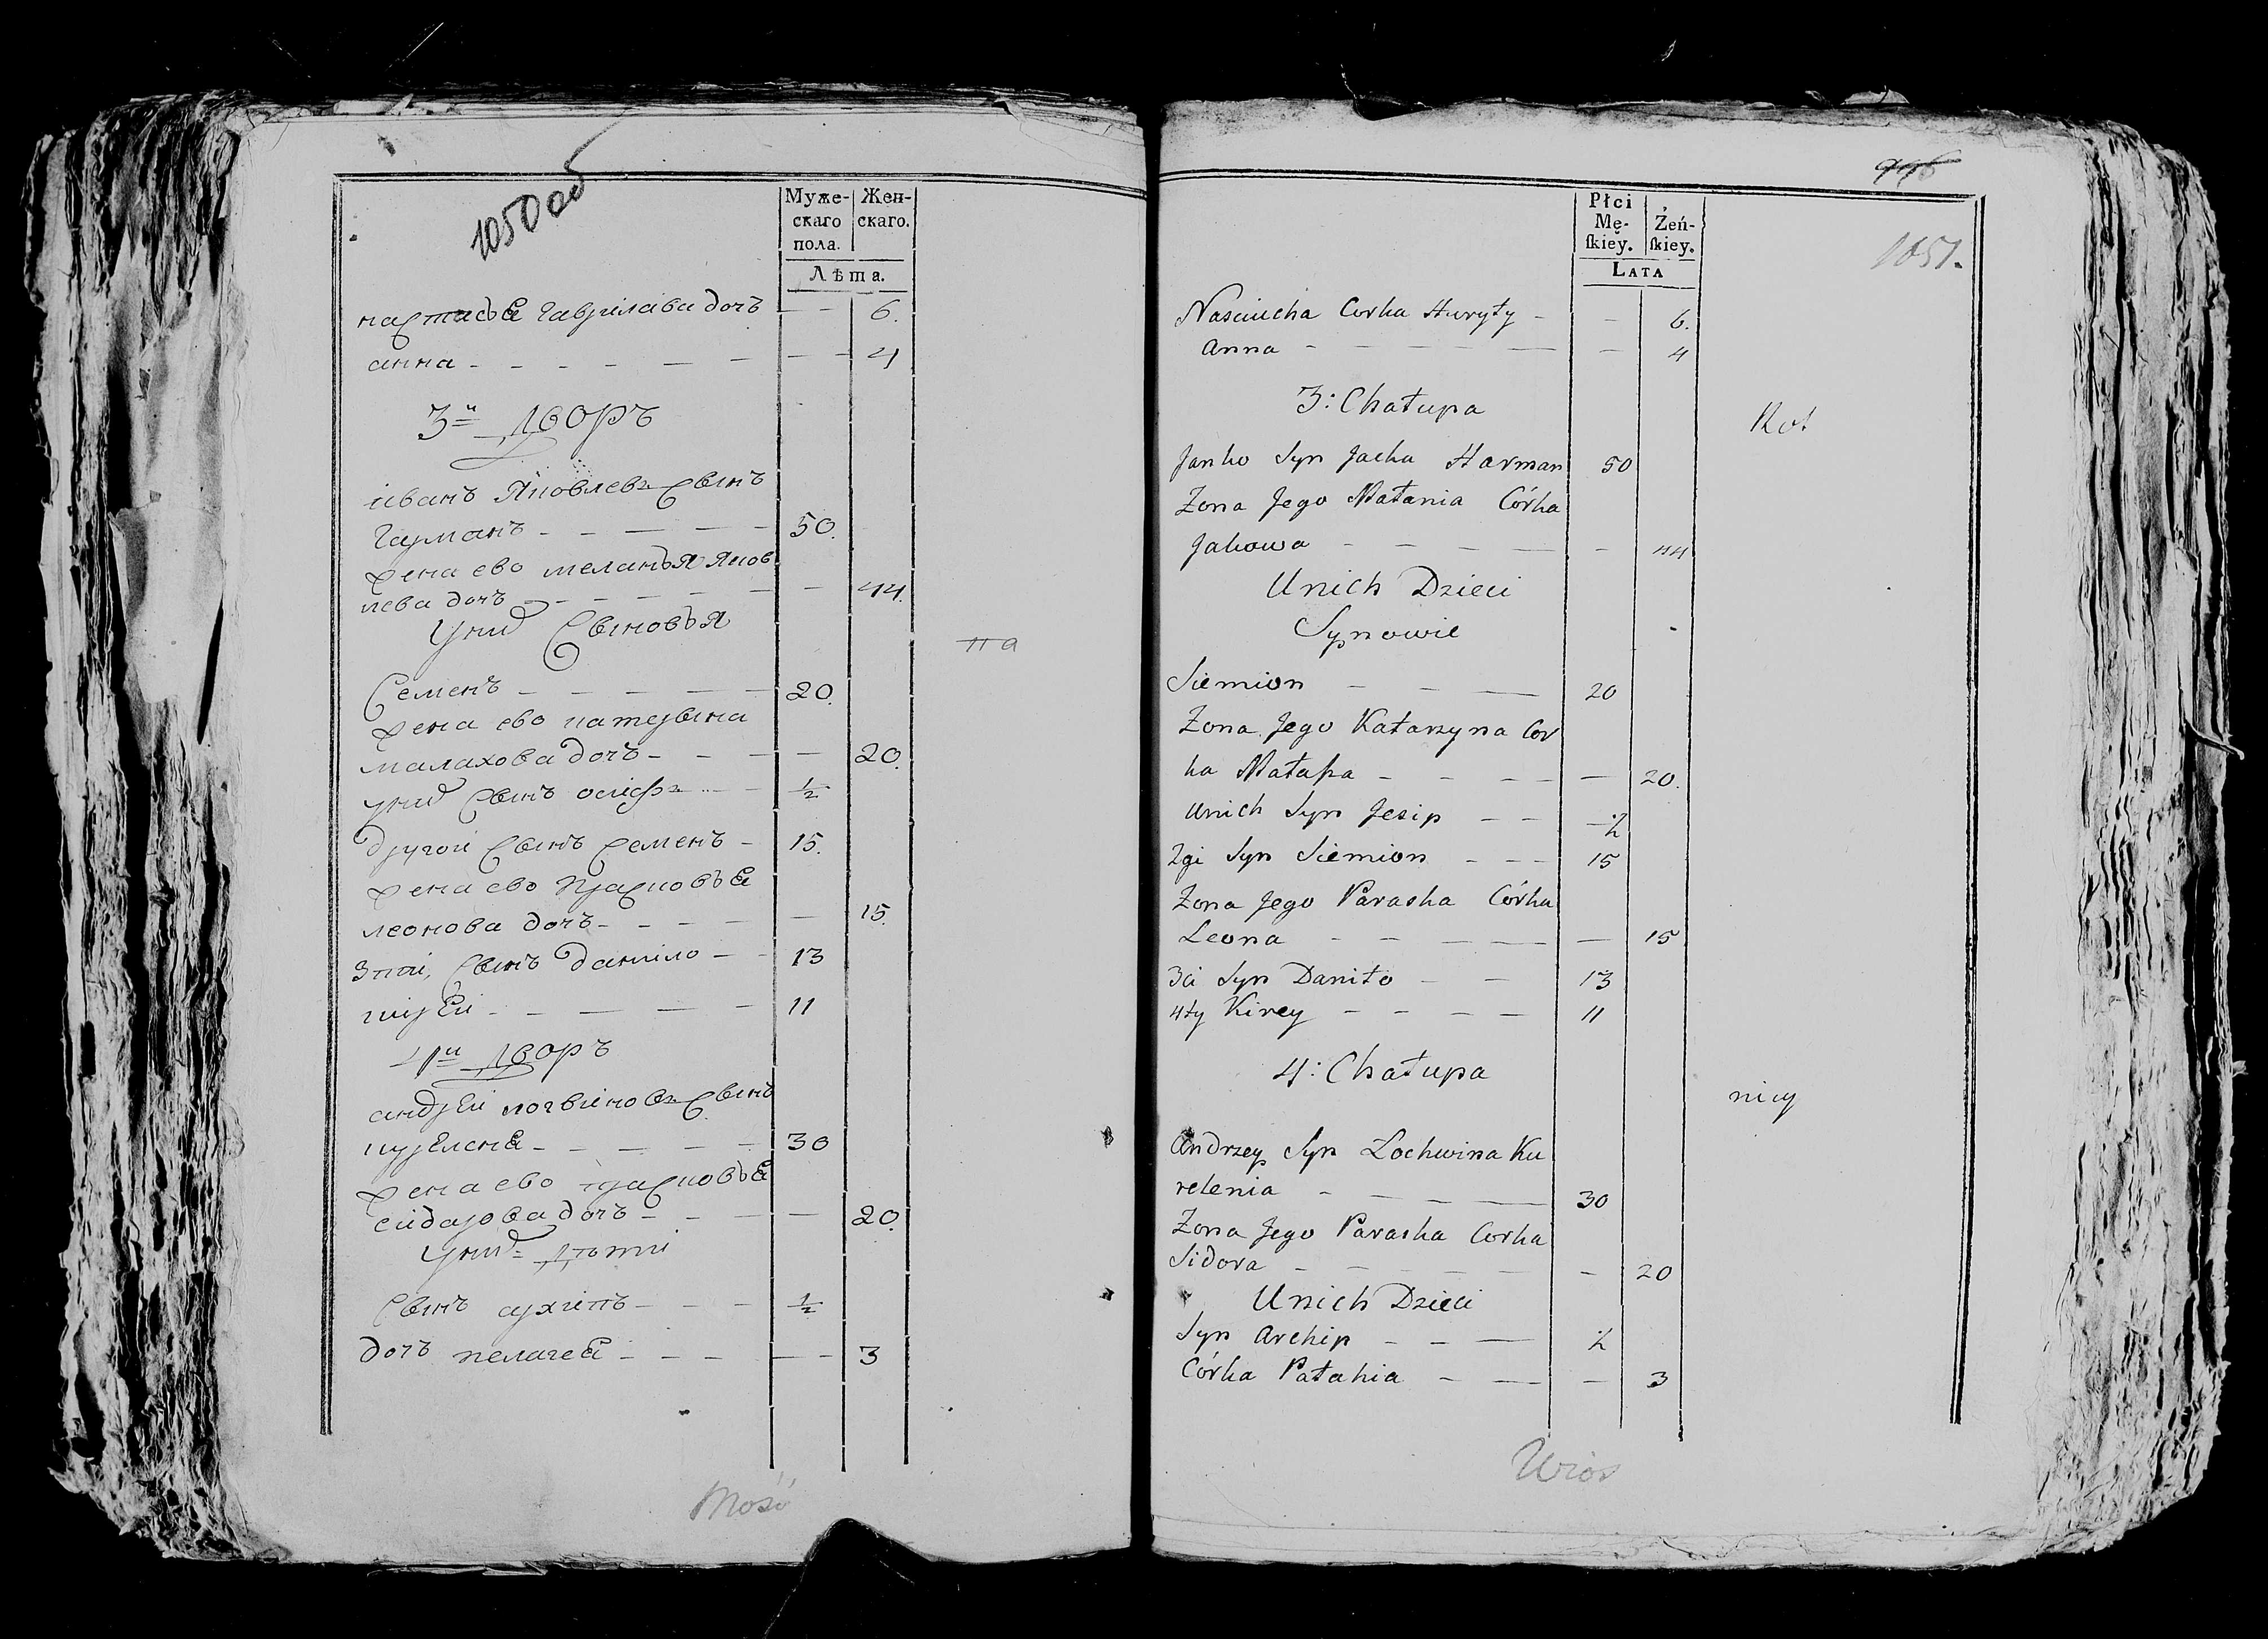 1050 об
Муже-
скаго
пола.
Жен-
скаго.
Лѣта.
настасья гаврилава дочъ — — 6.
анна — — — — — — — 4
3й дворъ
иванъ яковлевъ сынъ
гарманъ — — — — 50.
жена ево меланья яков
лева дочъ — — — — — 44.
у них сыновья
на
семенъ — — — — — 20.
жена ево катерына
малахова дочъ — — — — 20.
у них сынъ осифъ — — ½
другои сынъ семенъ — 15.
жена ево прасковья
леонова дочъ — — — — 15.
3тии сынъ данило — — 13
кирѣи — — — — — 11
4й дворъ
андрѣи логвиновъ сынъ
курѣленя — — — — — 30
жена ево прасковья
сидарова дочъ — — — — 20.
у них дѣти
сынъ архипъ — — — ½
дочъ пелагея — — — — — 3
Mość
996
1051.
Płci
Mę-
skiey.
Żeń-
skiey.
LATA
Nasciucha Corka Huryły — — 6.
Anna — — — — — — 4
3: Chałupa
Kot
Janko Syn Jacka Harman 50
Zona Jego Małania Córka
Jakowa — — — — — 44
Unich Dzieci
Synowie
Siemion — — — 20
Zona Jego Katarzyna Cor
ka Małaſza — — — — — 20.
Unich Syn Jesip — — ½
2gi Syn Siemion — — — 15
Zona Jego Paraska Córka
Leona — — — — — 15
3ci Syn Daniło — — 13
4ty Kirey — — — — 11
4: Chałupa
nicy
Andrzey Syn Lochwina Ku
relenia — — — — 30
Zona Jego Paraska Corka
Sidora — — — — — — 20
Unich Dzieci
Syn Archip — — — ½
Córka Pałahia — — — 3
Wios